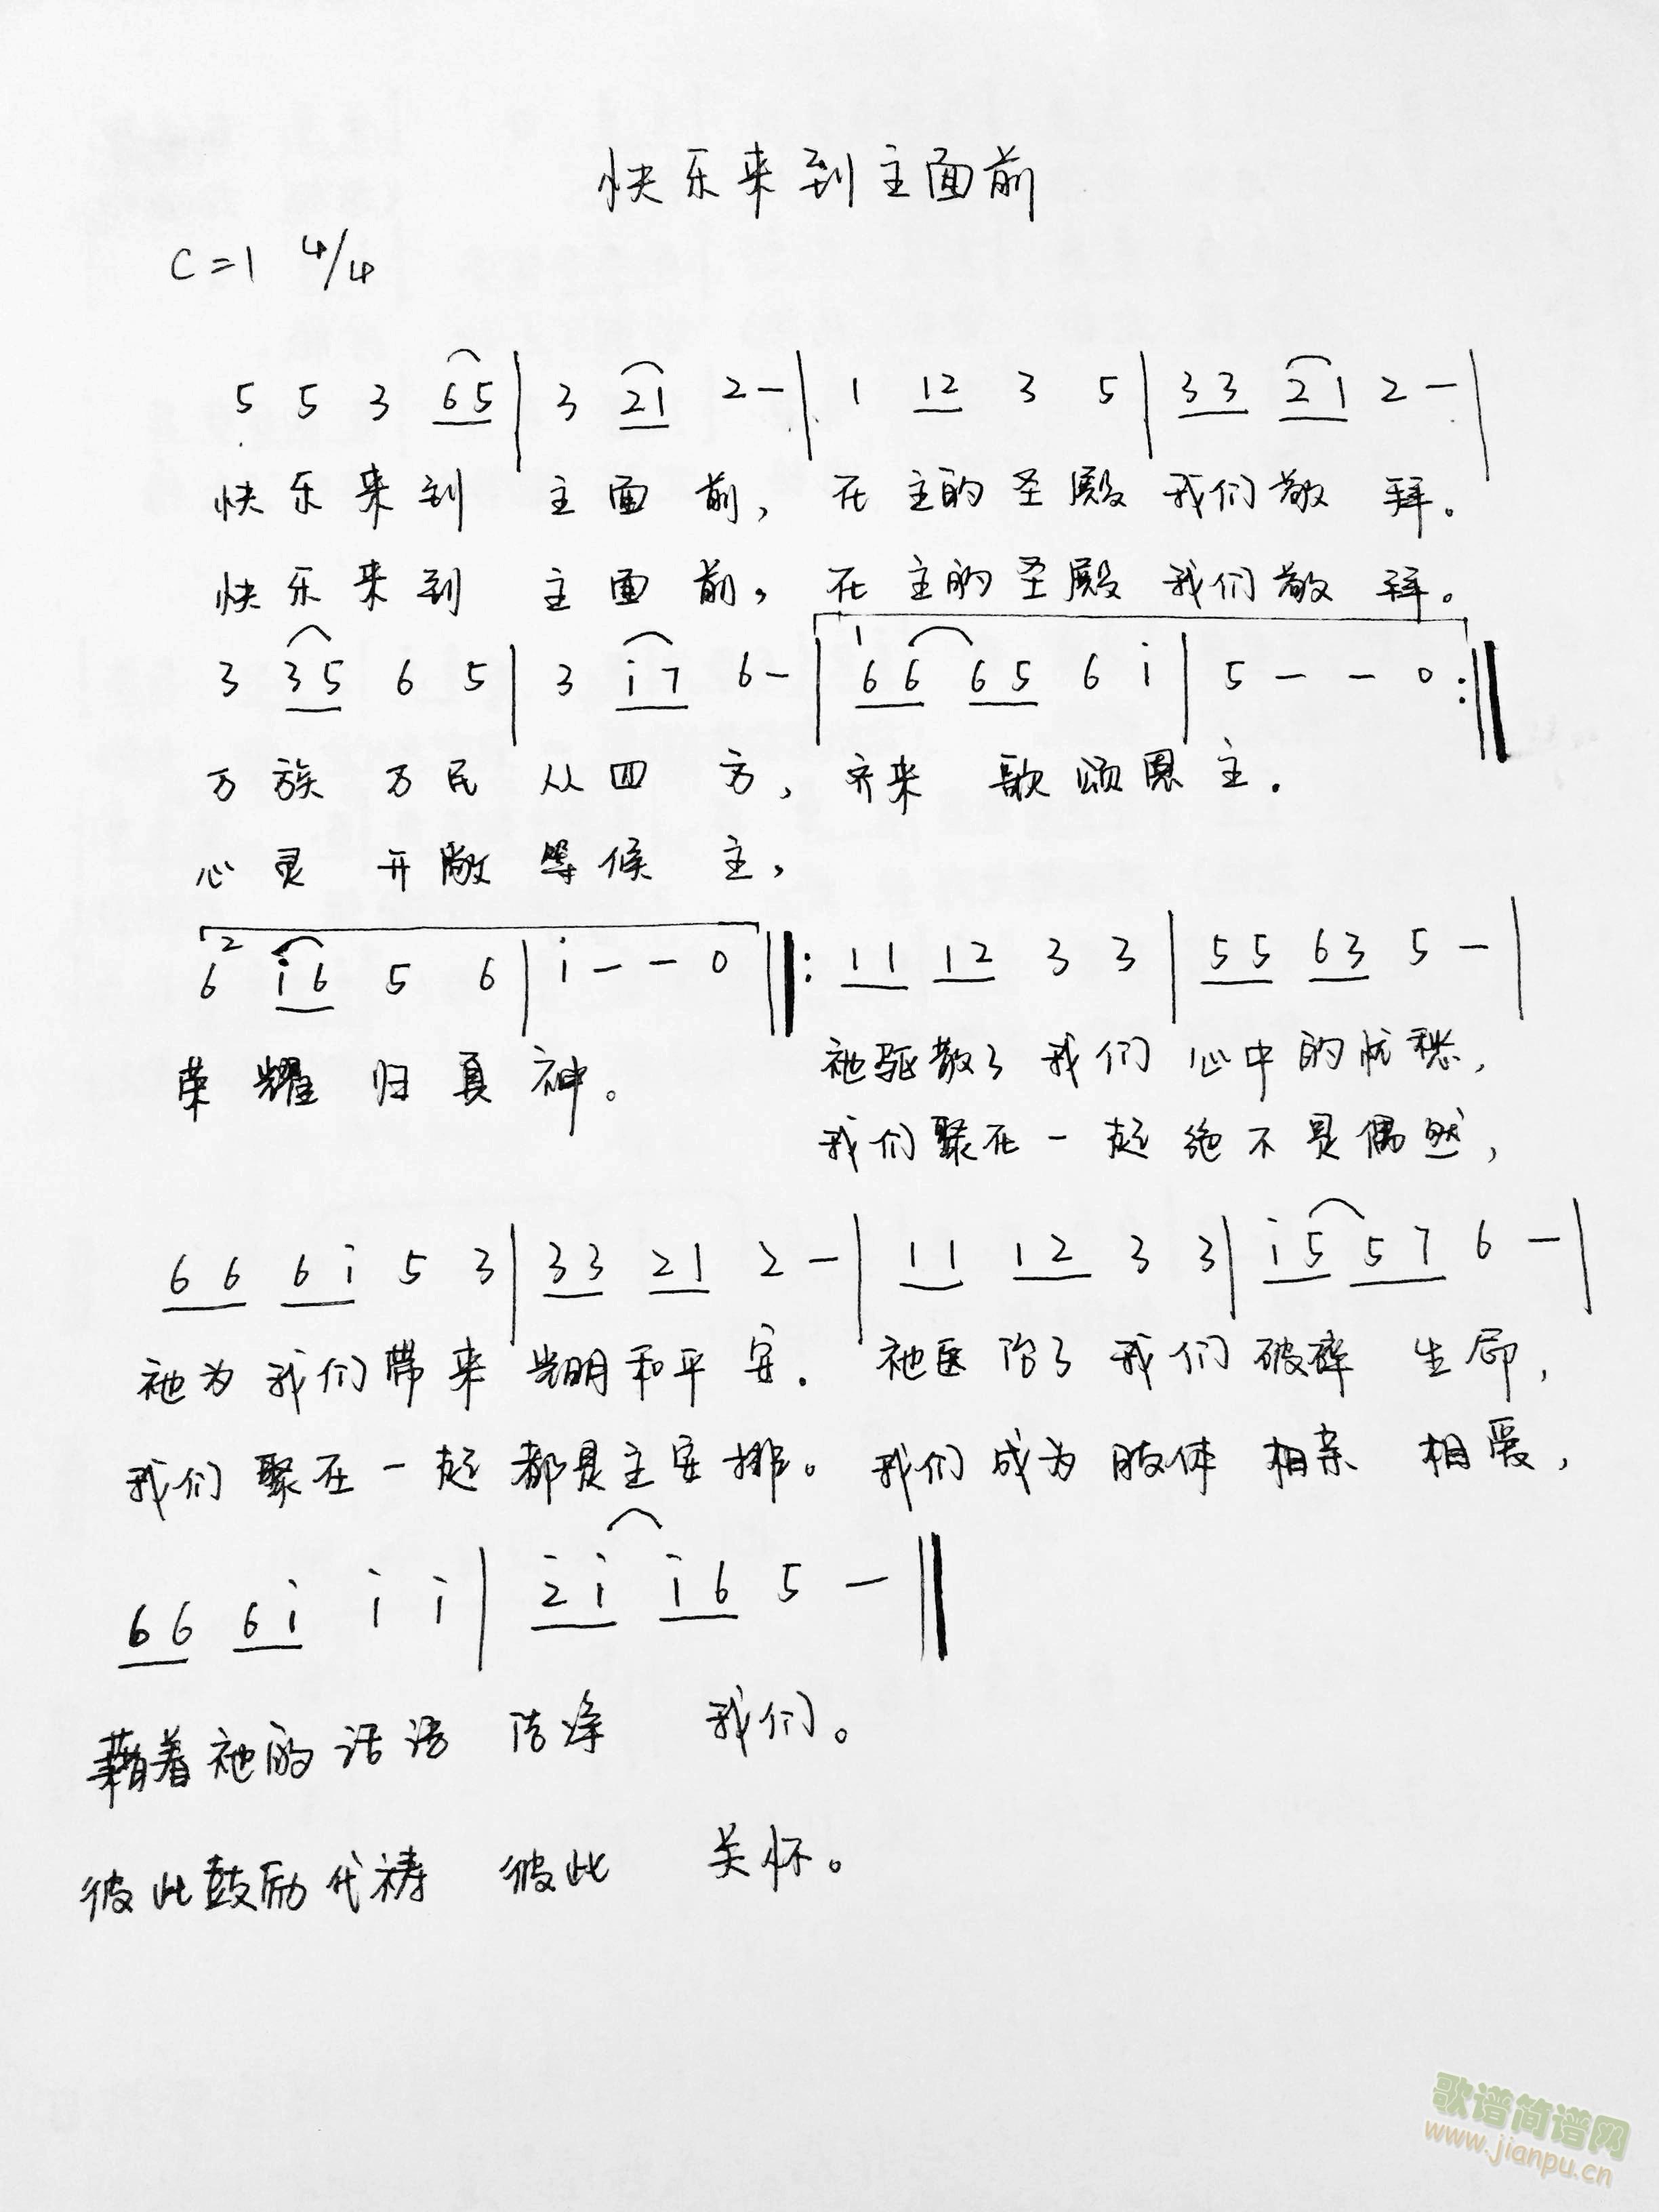 快乐来到主面前
C=1 4/4
5 5 3 65 | 3 21 2 - | 1 12 3 5 | 33 21 2 - |
快乐来到 主面前，在主的圣殿我们敬拜。
快乐来到 主面前，在主的圣殿我们敬拜。
3 35 6 5 | 3 i7 6 - | 1 66 65 6 i | 5 - - 0 :||
万族万民从四方，齐来歌颂恩主.
心灵开敞等候主，
2 6 i6 5 6 | i - - 0 ||: 11 12 3 3 | 55 63 5 - |
荣耀归真神。 祂驱散了我们心中的忧愁，
我们聚在一起绝不是偶然，
66 6i 5 3 | 33 21 2 - | 11 12 3 3 | i5 57 6 - |
祂为我们带来光明和平安. 祂医治了我们破碎生命，
我们聚在一起都是主安排。我们成为肢体相亲相爱，
66 6i i i | 2̇i i6 5 - ||
藉着祂的话语洁净我们。
彼此鼓励代祷彼此关怀。
歌谱简谱网
www.jianpu.cn